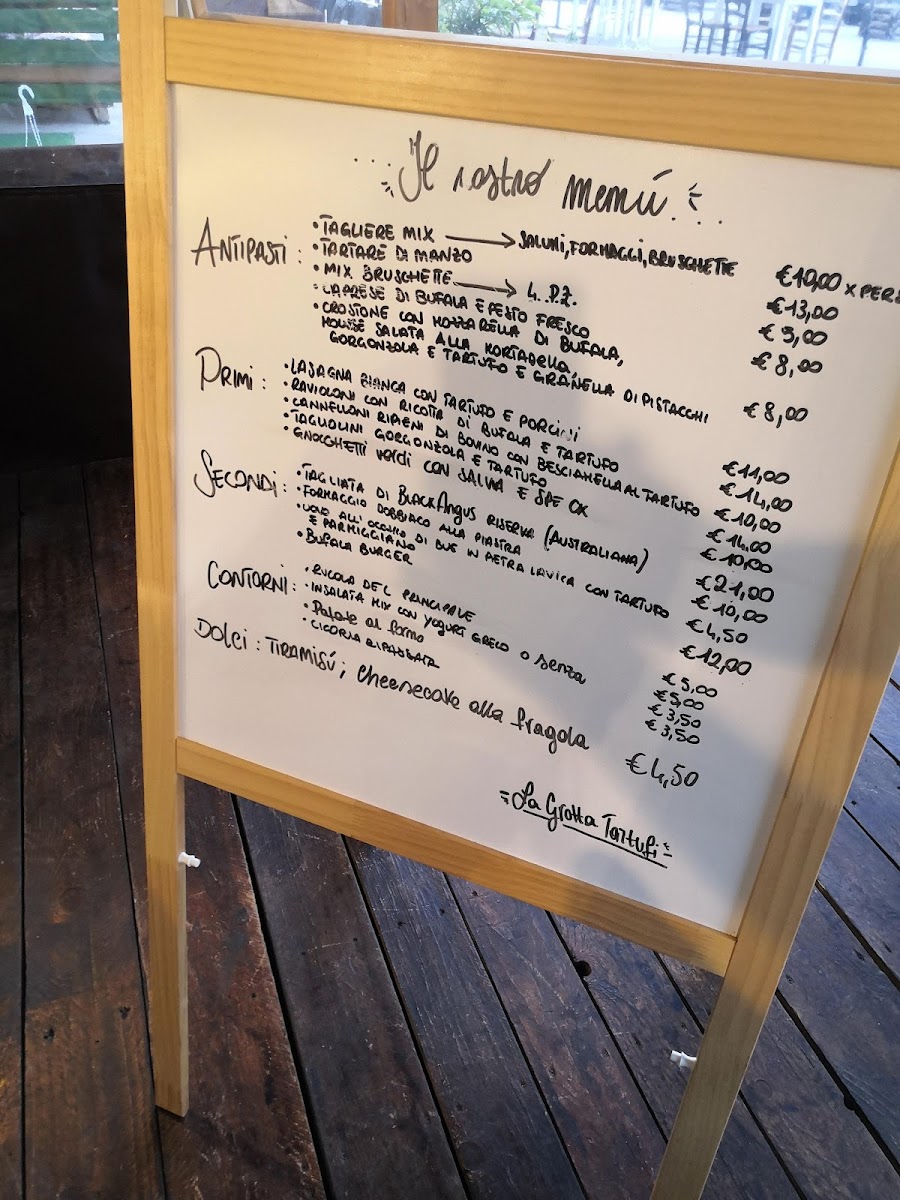 Il nostro menú
ANTIPASTI:
• TAGLIERE MIX → SALUMI, FORMAGGI, BRUSCHETTE €10,00 x PERS
• TARTARE DI MANZO €13,00
• MIX BRUSCHETTE → 4 PZ. €9,00
• CAPRESE DI BUFALA E PESTO FRESCO €8,00
• CROSTONE CON MOZZARELLA DI BUFALA,
MOUSSE SALATA ALLA MORTADELLA,
GORGONZOLA E TARTUFO E GRANELLA DI PISTACCHI €8,00
PRIMI:
• LASAGNA BIANCA CON TARTUFO E PORCINI €11,00
• RAVIOLONI CON RICOTTA DI BUFALA E TARTUFO €14,00
• CANNELLONI RIPIENI DI BOVINO CON BESCIAMELLA AL TARTUFO €10,00
• TAGLIOLINI GORGONZOLA E TARTUFO €14,00
• GNOCCHETTI VERDI CON SALVIA E €10,00
SECONDI:
• TAGLIATA DI BLACK ANGUS RISERVA (AUSTRALIANA) €21,00
• FORMAGGIO DOBBIACO ALLA PIASTRA €10,00
• UOVO ALL'OCCHIO DI BUE IN PETRA LAVICA CON TARTUFO
E PARMIGGIANO €4,50
• BUFALA BURGER €12,00
CONTORNI:
• RUCOLA DEL PRINCIPALE €5,00
• INSALATA MIX CON YOGURT GRECO o senza €5,00
• Patate al forno €3,50
• CICORIA RIPASSATA €3,50
DOLCI: TIRAMISÚ; Cheesecake alla fragola €4,50
La Grotta Tartufi